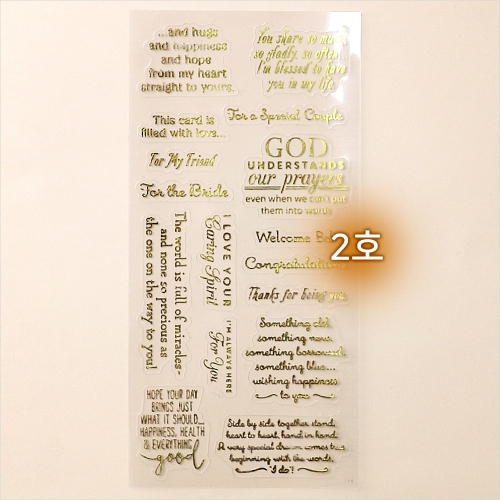 ...and hugs
and happiness
and hope
from my heart
straight to yours.
You share so much
so gladly, so often
I'm blessed to have
you in my life
This card is
filled with love...
For a Special Couple
For My Friend
For the Bride
GOD
UNDERSTANDS
our prayers
even when we can't put
them into words
The world is full of miracles-
and none so precious as
the one on the way to you!
I LOVE YOUR
Caring Spirit
I'M ALWAYS HERE
For You
Welcome
2호
Congratulations
Thanks for being you
Something old,
something new,
something borrowed,
something blue...
wishing happiness
to you
HOPE YOUR DAY
BRINGS JUST
WHAT IT SHOULD...
HAPPINESS, HEALTH
& EVERYTHING
good
Side by side together stand,
heart to heart, hand in hand.
A very special dream comes true
beginning with the words,
"I do"!